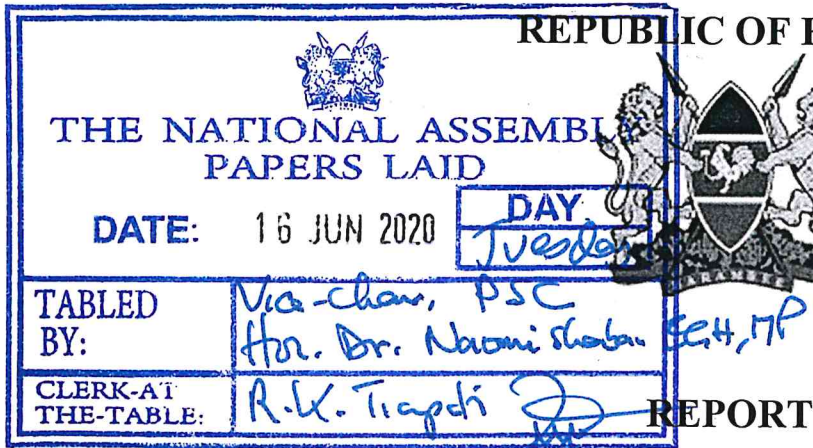 REPUBLIC OF
THE NATIONAL ASSEMBLY
PAPERS LAID
DATE: 16 JUN 2020
DAY.
Tuesday
TABLED BY:
Vice-Chair, PSC
Hon. Dr. Naomi Shaban EGH, MP
CLERK-AT THE-TABLE:
R.K.
REPORT